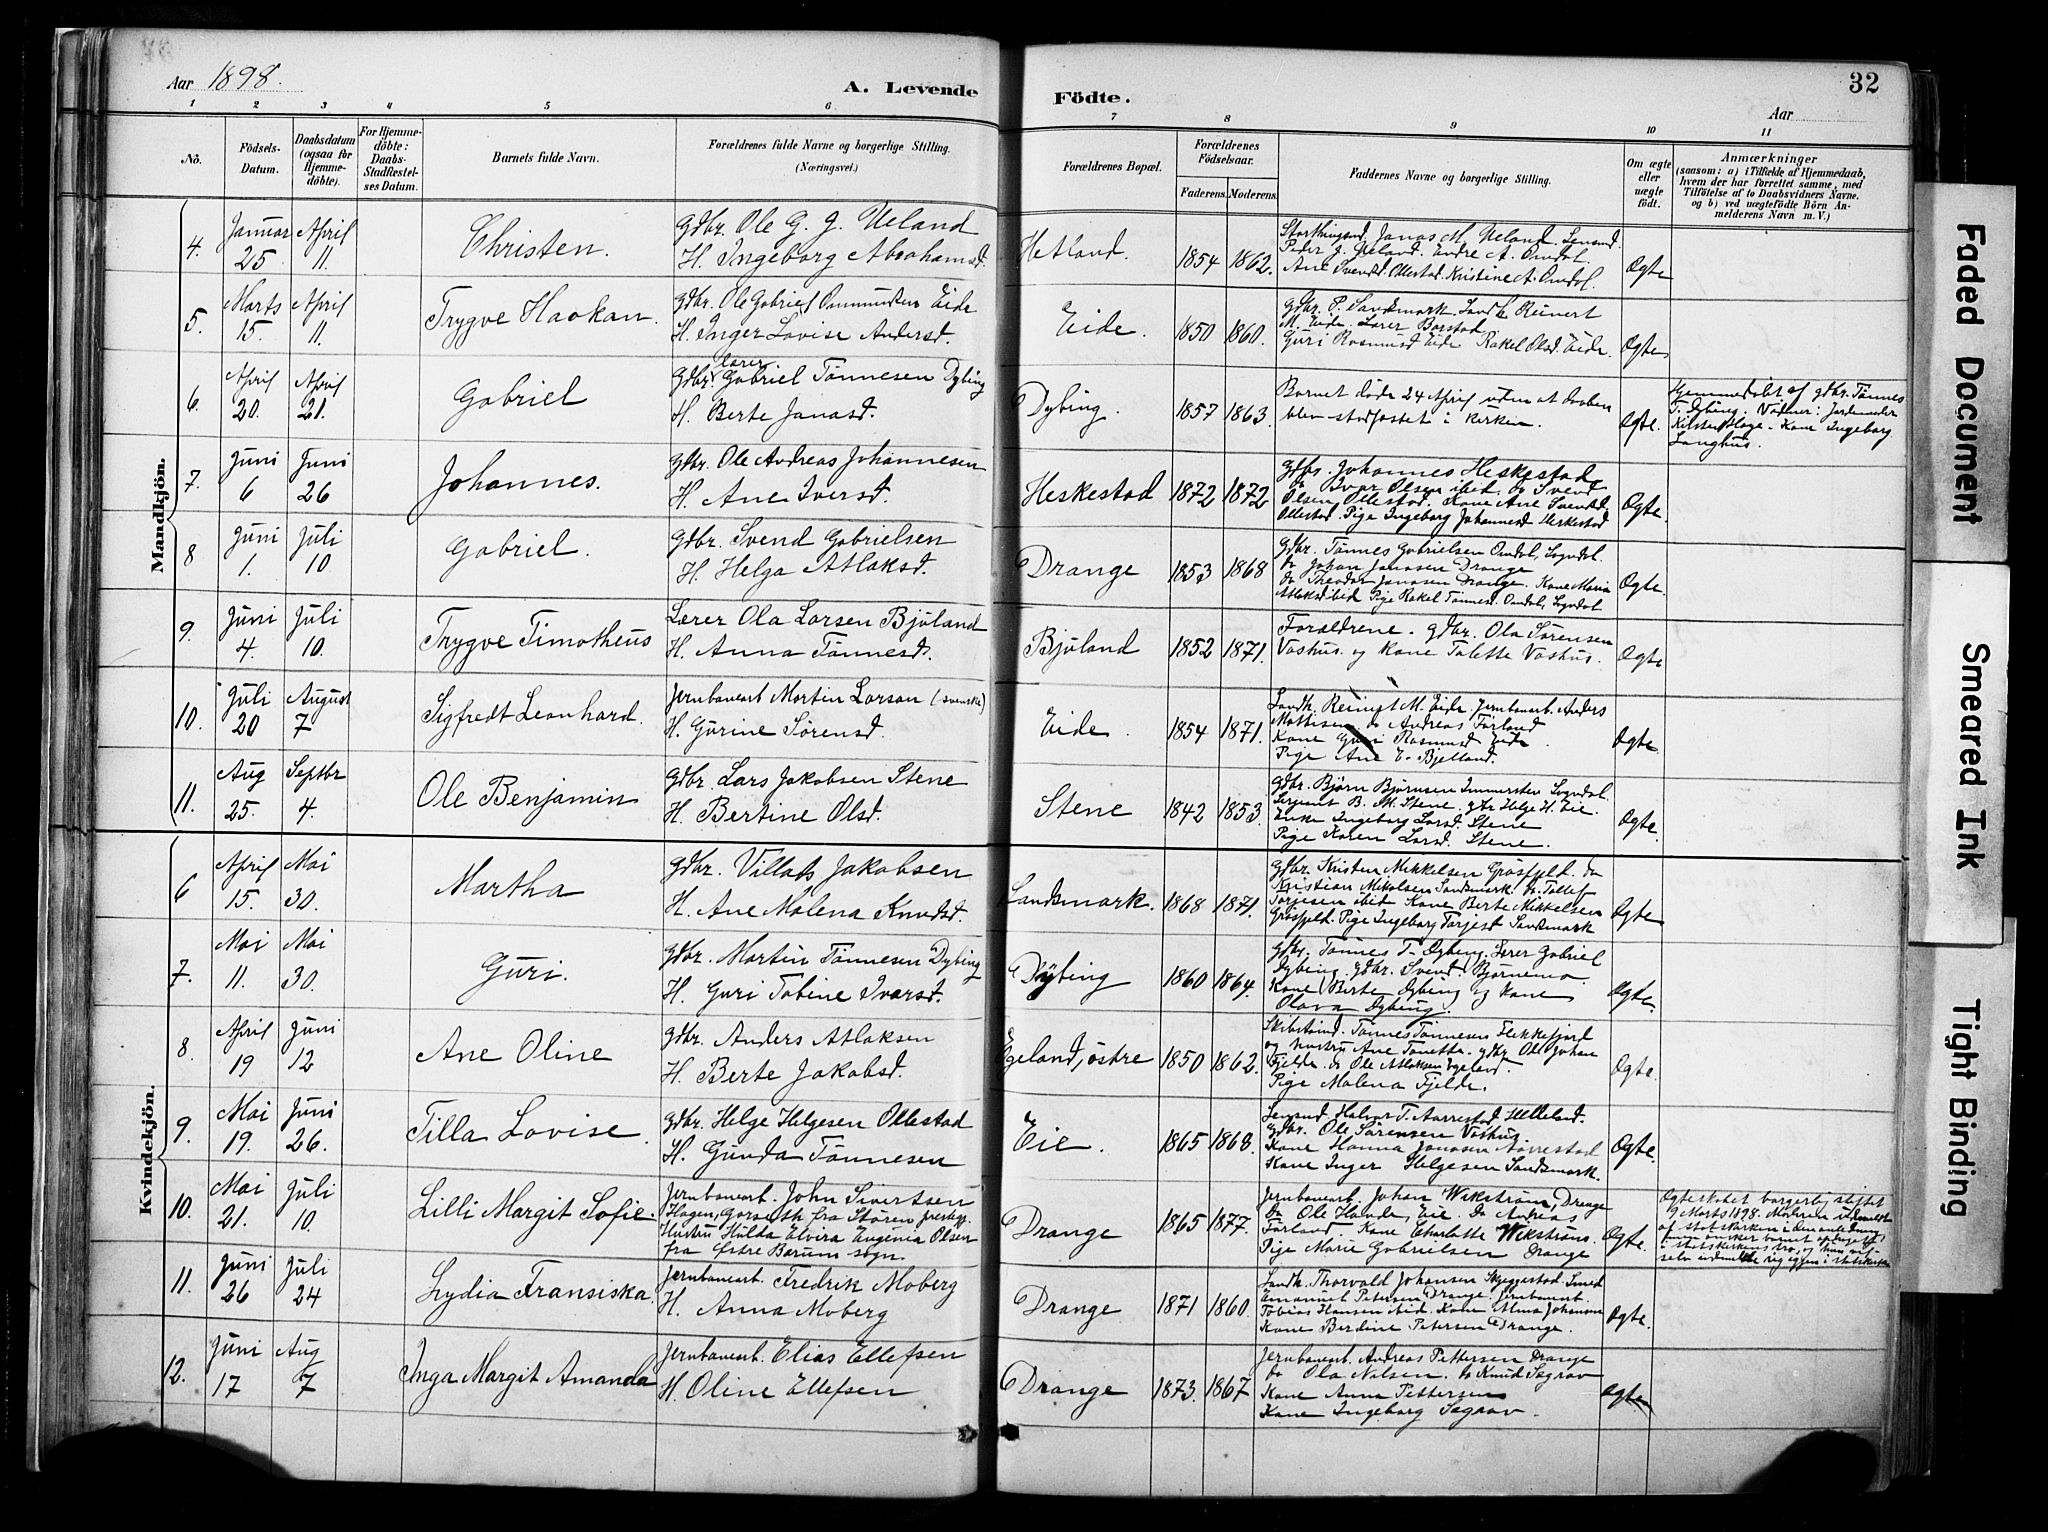 Aar 1898.
A. Levende
Födte.
Aar
32
1 2 3 4 5 6 7 8 9 10 11
No.
Födsels-Datum.
Daabsdatum (ogsaa for Hjemme-döbte).
For Hjemme-döbte: Daabs-Stadfæstelses Datum.
Barnets fulde Navn.
Forældrenes fulde Navne og borgerlige Stilling.
(Næringsvei.)
Forældrenes Bopæl.
Forældrenes Födselsaar.
Faderens. Moderens.
Faddernes Navne og borgerlige Stilling.
Om ægte eller uægte födt.
Anmærkninger
(saasom: a) i Tilfælde af Hjemmedaab,
hvem der har forrettet samme, med
Tilföielse af to Daabsvidners Navne.
og b) ved uægtefödte Börn An-
melderens Navn m. V.)
Mandkjön.
4. Januar 25 April 11. Christen. Gdbr. Ole G. J. Ueland
H. Ingeborg Abrahamsd. Hetland. 1854 1862.
Storthingsmd. Jonas M. Ueland. Lensmd.
Peder J. Ueland. Endre A. Omdal.
Ane Svendsd. Ollestad. Kristine A. Omdal. Ægte
5. Marts 15. April 11. Trygve Haakan. Gdbr. Ole Gabriel Ommundsen Eide
H. Inger Lovise Andersd. Eide. 1850 1860.
Gdbr. P. Sandsmark. Landh. Reinert
M. Eide. Lærer Borstad.
Guri Rasmusd Eide. Rakel Olsd. Eide. Ægte
6. April 20. April 21. Gabriel Gdbr. lærer Gabriel Tönnesen Dybing
H. Berte Jonasd. Dybing. 1857 1863.
Barnet döde 24 April uden at daaben
blev stadfæstet i kirken. Ægte.
Hjemmedöbt af gdbr. Tönnes
T. Dybing. Vidner: Jordemoder
Kirsten Hage - Kone Ingeborg
Langhus.
7. Juni 6 Juni 26 Johannes. Gdbr. Ole Andreas Johannesen
H. Ane Iversd. Heskestad 1872 1872
Gdbr. Johannes Heskestad
do Ivar Olsen ibid. do Svend
Olsen Ollestad. Kone Ane Svendsd.
Ollestad. Pige Ingeborg Johannesd Heskestad Ægte.
8 Juni 1. Juli 10 Gabriel. Gdbr. Svend Gabrielsen
H. Helga Atlaksd. Drange 1853 1868
Gdbr. Tönnes Gabrielsen Omdal, Sogndal.
do Johan Jonassen Drange
do Theodor Jonassen Drange. Kone Maria
Atlaksd ibid Pige Rakel Tönnesd. Omdal, Sogndal Ægte.
9. Juni 4. Juli 10. Trygve Timotheus Lærer Ola Larsen Bjuland
H. Anna Tönnesd. Bjuland 1852 1871.
Forældrene. Gdbr. Ola Sörensen
Vashus. og Kone Talette Vashus. Ægte
10. Juli 20 August 7 Sigfredt Leonhard. Jernbanearb Martin Larson (svenske)
H. Gurine Sörensd. Eide 1854 1871.
Landh. Reinert M. Eide. Jernbanearb. Anders
Mattisen do Andreas Förland
Kone Guri Rasmusd Eide
Pige Ane E. Bjelland. Ægte
11. Aug 25. Septbr 4. Ole Benjamin Gdbr. Lars Jakobsen Stene
H. Bertine Olsd. Stene 1842 1853.
Gdbr. Björn Björnsen Immersten Sogndal.
Sergeant B. M. Stene. gbr Helge H. Eie.
Enke Ingeborg Larsd. Stene
Pige Karen Larsd. Stene. Ægte.
Kvindekjön.
6 April 15. Mai 30. Martha Gdbr. Villads Jakobsen
H. Ane Malena Knudsd. Sandsmark. 1868 1871.
Gdbr. Kristen Mikkelsen Grösfjeld. do
Kristian Mikalsen Sandsmark. do. Tollef
Torjesen ibid. Kone Berte Mikkelsen
Grösfjeld. Pige Ingeborg Torjesd Sandsmark Ægte
7. Mai 11. Mai 30. Guri. Gdbr. Martin Tönnesen Dybing
H. Guri Tobine Ivarsd. Dybing 1860 1864.
Gdbr. Tönnes T. Dybing. Lærer Gabriel
Dybing. Gdbr. Svend Björnemo.
Kone Berte Dybing og kone
Olava Dybing. Ægte.
8. April 19 Juni 12 Ane Oline Gdbr. Anders Atlaksen
H. Berte Jakobsd. Egeland, östre 1850 1862.
Skibstömd. Tönnes Tönnesen Flekkefjord
og hustru Ane Tonette. gdbr Ole Johan
Fjelde. do Ole Atlaksen Egeland.
Pige Malena Fjelde. Ægte.
9. Mai 19. Juni 26. Tilla Lovise. Gdbr. Helge Helgesen Ollestad
H. Gunda Tönnesen Eie. 1865 1868.
Lensmd. Halvor T. Aarrestad Helleland.
Gdbr. Ole Sörensen Vashus
Kone Hanna Jonasen Aarrestad
Kone Inger Helgesen Sandsmark. Ægte.
10. Mai 21. Juli 10. Lilli Margit Sofie. Jernbanearb. John Sivertsen
Hagen, fra Stören
Hustru Hulda Elvira Eugenia Olsen
fra Østre Bærum sogn. Drange 1865 1877.
Jernbanearb. Johan Wikström, Drange
do Ole Hande, Eie. do Andreas
Förland. Kone Charlotte Wikström.
Pige Marie Gabrielsen Drange Ægte.
Ægteskabet borgerlig stiftet
9 Marts 1898. Moderen udmeldt
af statskirken
i statskirkens tro, og
11. Juni 26 Juli 24 Lydia Fransiska. Jernbanearb. Fredrik Moberg
H. Anna Moberg Drange 1871 1860.
Landh. Thorvald Johansen Skyggestad. Smed
Emanuel Petersen Drange. Jernbanearb.
Tobias Hansen Eid. Kone Alma Johansen
Kone Berdine Petersen Drange. Ægte.
12. Juni 17 Aug 7 Inga Margit Amanda Jernbanearb. Elias Ellefsen
H. Oline Ellefsen Drange 1873. 1867
Jernbanearb. Andreas Pettersen Drange
do Ola Nilsen. do Knud Sagrav
Kone Anna Pettersen
Kone Ingeborg Sagrav. Ægte
Faded Document
Smeared Ink
Tight Binding